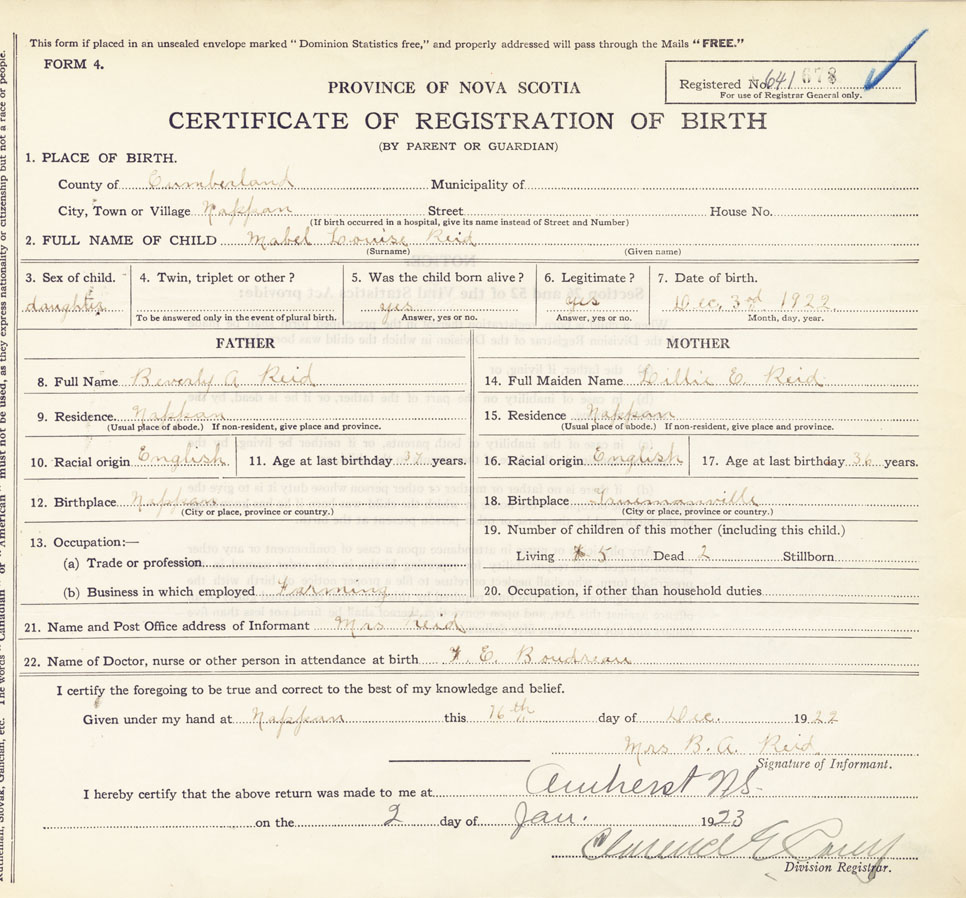 This form if placed in an unsealed envelope marked "Dominion Statistics free," and properly addressed will pass through the Mails "FREE."
FORM 4.
Registered No. 641 678
For use of Registrar General only.
PROVINCE OF NOVA SCOTIA
CERTIFICATE OF REGISTRATION OF BIRTH
(BY PARENT OR GUARDIAN)
1. PLACE OF BIRTH.
County of Cumberland Municipality of
City, Town or Village Nappan Street House No.
(If birth occurred in a hospital, give its name instead of Street and Number)
2. FULL NAME OF CHILD Mabel Louise Reid
(Surname) (Given name)
3. Sex of child. 4. Twin, triplet or other? 5. Was the child born alive? 6. Legitimate? 7. Date of birth.
daughter yes yes Dec. 3rd 1922
To be answered only in the event of plural birth. Answer, yes or no. Answer, yes or no. Month, day, year.
FATHER
8. Full Name Beverly A Reid
9. Residence. Nappan
(Usual place of abode.) If non-resident, give place and province.
10. Racial origin English 11. Age at last birthday 37 years.
12. Birthplace Nappan
(City or place, province or country.)
13. Occupation:—
(a) Trade or profession
(b) Business in which employed Farming
MOTHER
14. Full Maiden Name Lillie E. Reid
15. Residence Nappan
(Usual place of abode.) If non-resident, give place and province.
16. Racial origin English 17. Age at last birthday 36 years.
18. Birthplace Truemanville
(City or place, province or country.)
19. Number of children of this mother (including this child.)
Living 5 Dead 2 Stillborn
20. Occupation, if other than household duties
21. Name and Post Office address of Informant Mrs Reid
22. Name of Doctor, nurse or other person in attendance at birth E. Boudreau
I certify the foregoing to be true and correct to the best of my knowledge and belief.
Given under my hand at Nappan this 16th day of Dec. 1922
Mrs B. A. Reid
Signature of Informant.
I hereby certify that the above return was made to me at Amherst NS.
on the 2 day of Jan. 1923
Clarence E
Division Registrar.
must not be used, as they express nationality or citizenship but not a race or people.
Ruthenian, Slovak, Galician, etc. The words "Canadian" or "American"